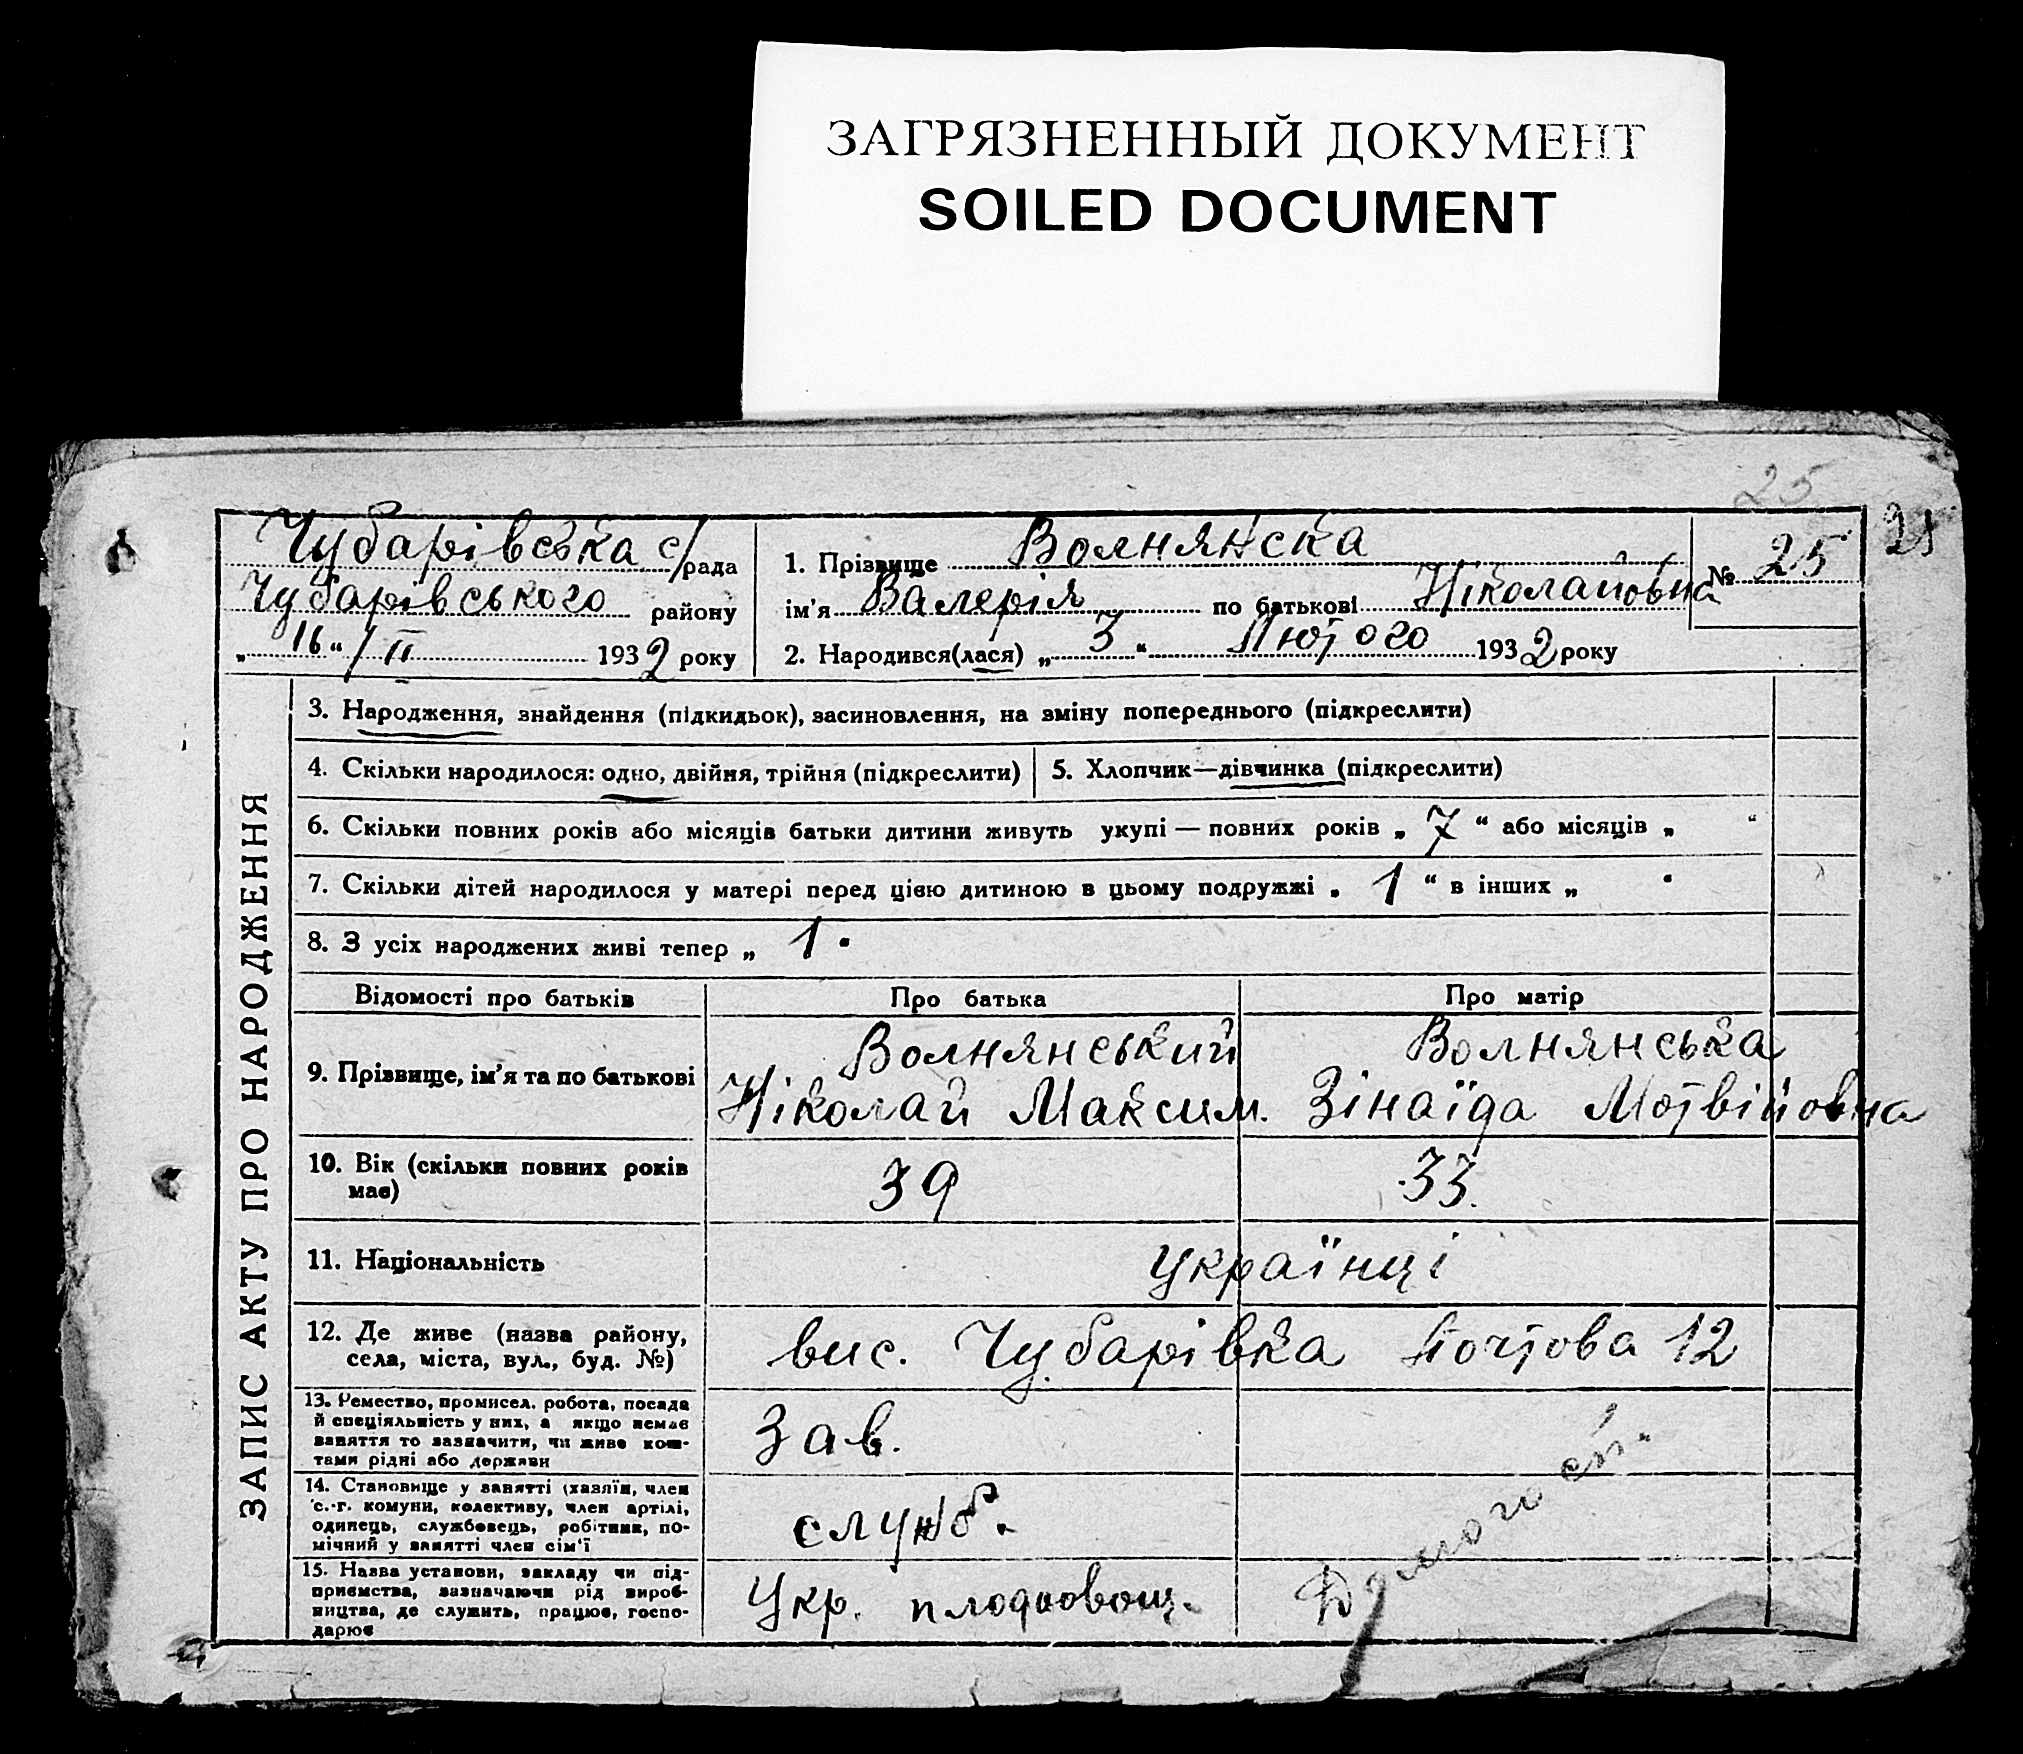 ЗАГРЯЗНЕННЫЙ ДОКУМЕНТ
SOILED DOCUMENT
25
25
Чубарівська с/рада
Чубарівського району
„ 16 “ / II 1932 року
1. Прізвище Волнянска
ім'я Валерія по батькові Ніколайовна
№ 25
2. Народився(лася) „ 3 “ Лютого 1932 року
ЗАПИС АКТУ ПРО НАРОДЖЕННЯ
3. Народження, знайдення (підкидьок), засиновлення, на зміну попереднього (підкреслити)
4. Скільки народилося: одно, двійня, трійня (підкреслити)
5. Хлопчик—дівчинка (підкреслити)
6. Скільки повних років або місяців батьки дитини живуть укупі — повних років „ 7 “ або місяців „ “
7. Скільки дітей народилося у матері перед цією дитиною в цьому подружжі „ 1 “ в інших „ “
8. З усіх народжених живі тепер „ 1 “
Відомості про батьків Про батька Про матір
9. Прізвище, ім'я та по батькові
Волнянський
Ніколай Максим.
Волнянська
Зінаїда Мотвійовна
10. Вік (скільки повних років
має)
39
33.
11. Національність
Українці
12. Де живе (назва району,
села, міста, вул., буд. №)
вис. Чубарівка Почтова 12
13. Ремество, промисел, робота, посада
й спеціяльність у них, а якщо немає
заняття то зазначити, чи живе кош-
тами рідні або держави
Зав.
14. Становище у занятті (хазяїн, член
с.-г. комуни, колективу, член артілі,
одинець, службовець, робітник, по-
мічний у занятті член сім'ї
служб.
15. Назва установи, закладу чи під-
приємства, зазначаючи рід вироб-
ництва, де служить, працює, госпо-
дарює
Укр. плодоовощ.